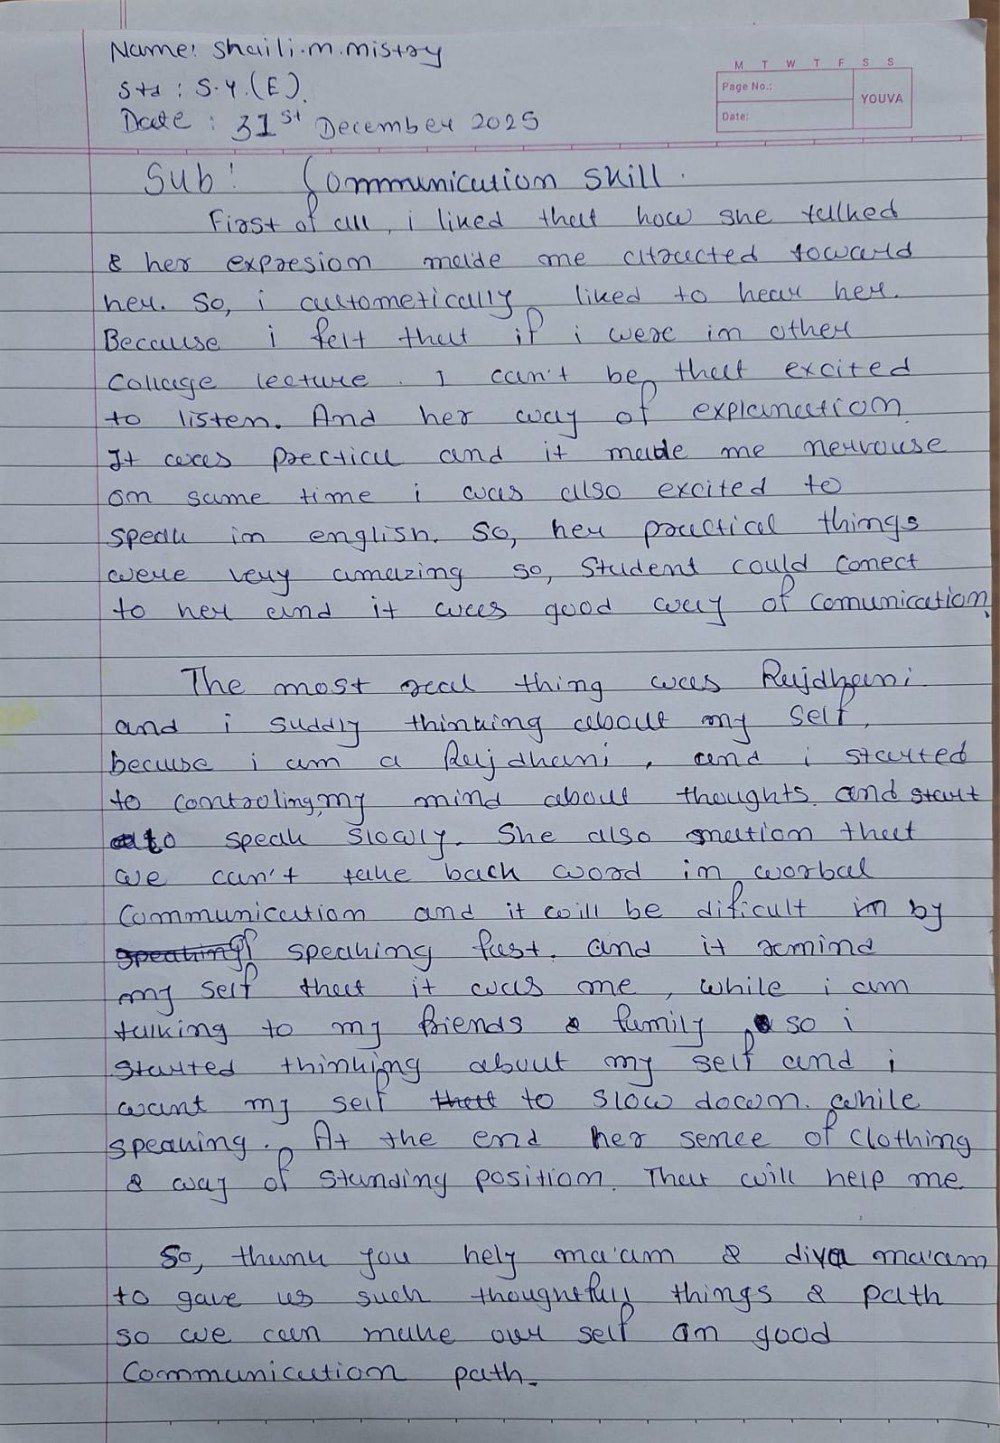 Name: Shaili.m.mistry
Std : S.Y.(E).
Date : 31st December 2025
M T W T F S S
Page No.:
Date:
YOUVA
Sub: Communication skill.
First of all, i liked that how she talked
& her expresion made me attracted toward
her. So, i autometically liked to hear her.
Because i felt that if i were in other
Collage lecture. I can't be that excited
to listen. And her way of explanation
It was prectical and it made me nervouse
on same time i was also excited to
speak in english. So, her practical things
were very amazing so, Student could conect
to her and it was good way of comunication.
The most real thing was Rajdhani
and i suddly thinking about my self,
becuse i am a Rajdhani, and i started
to controling my mind about thoughts. and start
to speak slowly. She also mention that
we can't take back word in worbal
Communication and it will be dificult in by
speaking speaking fast. and it remind
my self that it was me, while i am
talking to my friends & family, so i
started thinking about my self and i
want my self that to slow down. while
speaking. At the end her sence of clothing
& way of standing position. That will help me.
So, thank you hely ma'am & diya ma'am
to gave us such thoughtfull things & path
so we can make our self on good
Communication path.